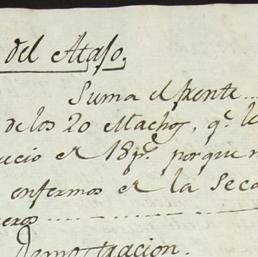 del Atajo.
Suma el frente...
de los 20 Machos, q.e le
ucio en 18 p.s porque n
enfermos en la Seca
eros
Demostracion.